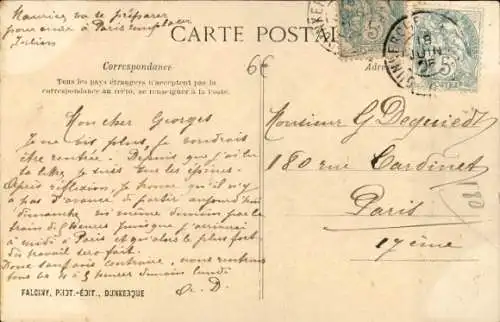 Maurice va se préparer
pour aller à Paris remplacer
Julien
CARTE POSTALE
Correspondance
Tous les pays étrangers n'acceptent pas la
correspondance au recto, se renseigner à la Poste.
6€
Adre
5
5
18
JUIN
POSTES
Mon cher Georges
Je ne vis plus, je voudrais
être rentrée. Depuis que j'ai lu
ta lettre, je suis sur les épines.
Après réflexion, je trouve qu'il n'y
a pas d'avance de partir aujourd'hui
dimanche, ni même demain par le
train de heures puisque j'arriverai
à midi à Paris et qu'alors le plus fort
du travail sera fait.
Donc sauf avis contraire, nous rentrons
tous à 5 heures demain lundi
A. D.
Monsieur G Dequiedt
180 rue Cardinet
Paris
17ème
180
FALCINY, PHOT.-ÉDIT., DUNKERQUE